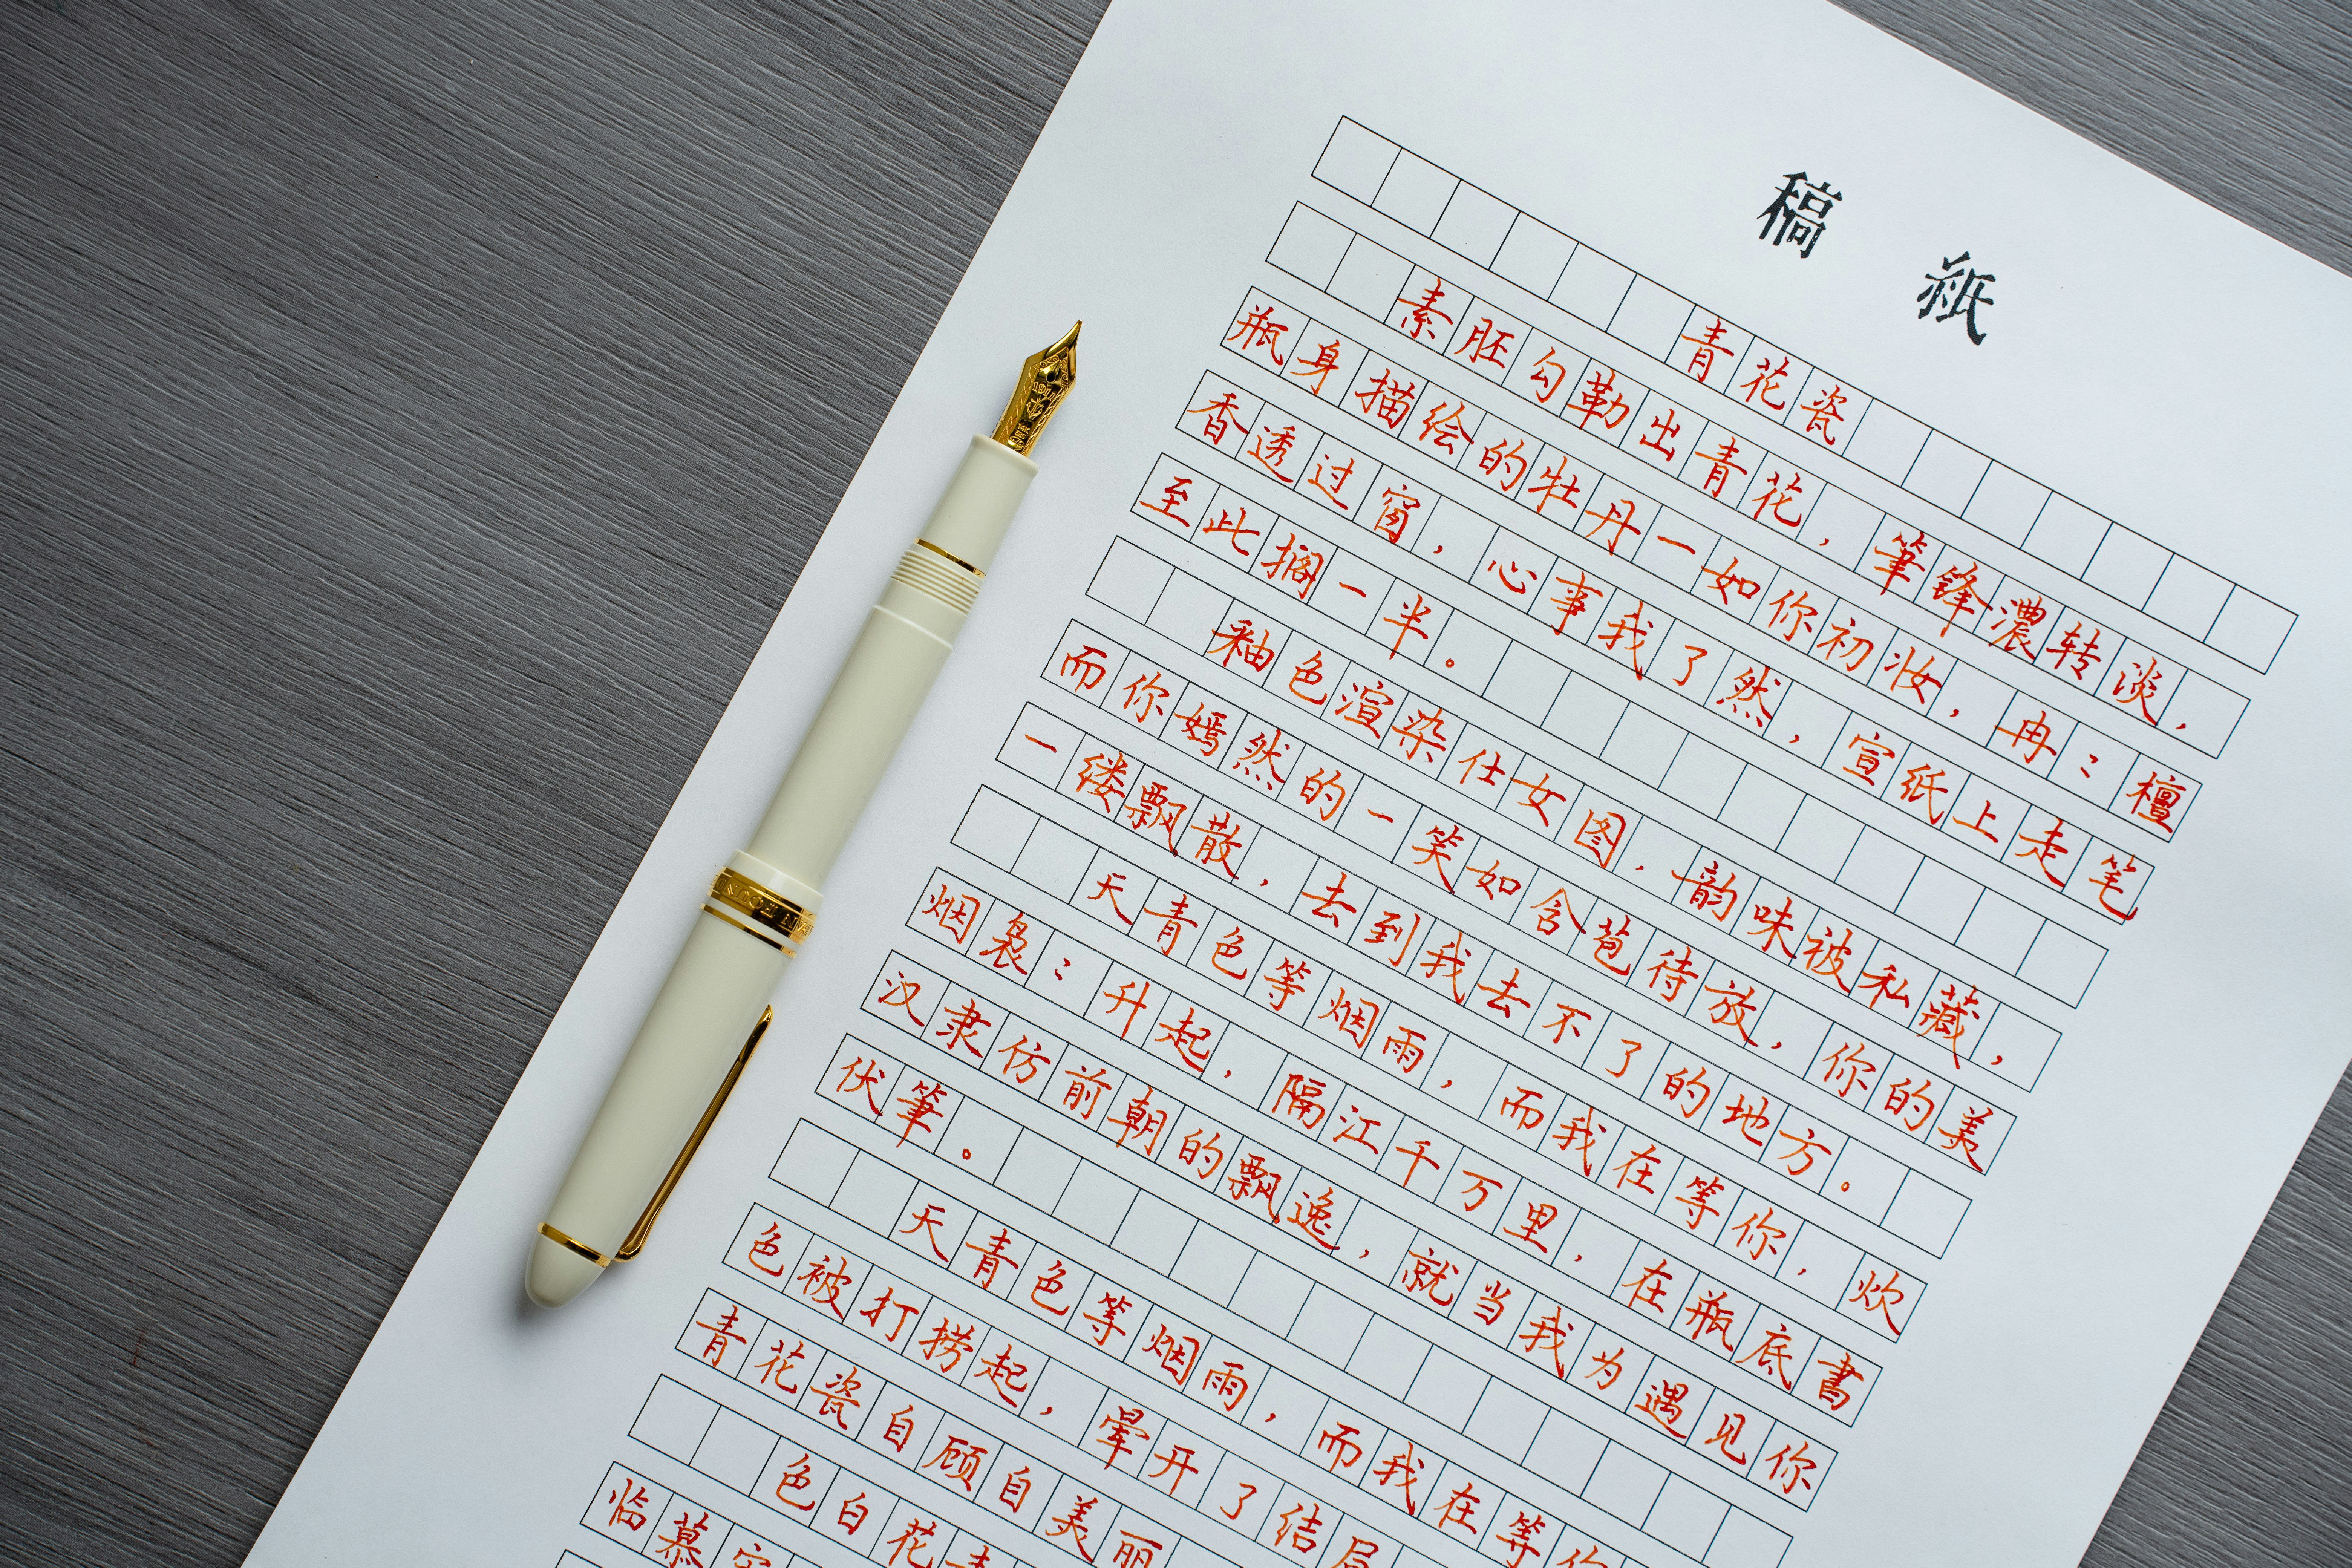 稿紙
青花瓷
素胚勾勒出青花，筆锋濃转淡，
瓶身描绘的牡丹一如你初妆，冉〻檀
香透过窗，心事我了然，宣纸上走笔
至此搁一半。
釉色渲染仕女图，韵味被私藏，
而你嫣然的一笑如含苞待放，你的美
一缕飘散，去到我去不了的地方。
天青色等烟雨，而我在等你，炊
烟袅〻升起，隔江千万里，在瓶底書
汉隶仿前朝的飘逸，就当我为遇见你
伏筆。
天青色等烟雨，而我在等你
色被打捞起，暈开了结局
青花瓷自顾自美丽
色白花青
临慕
1911
14K